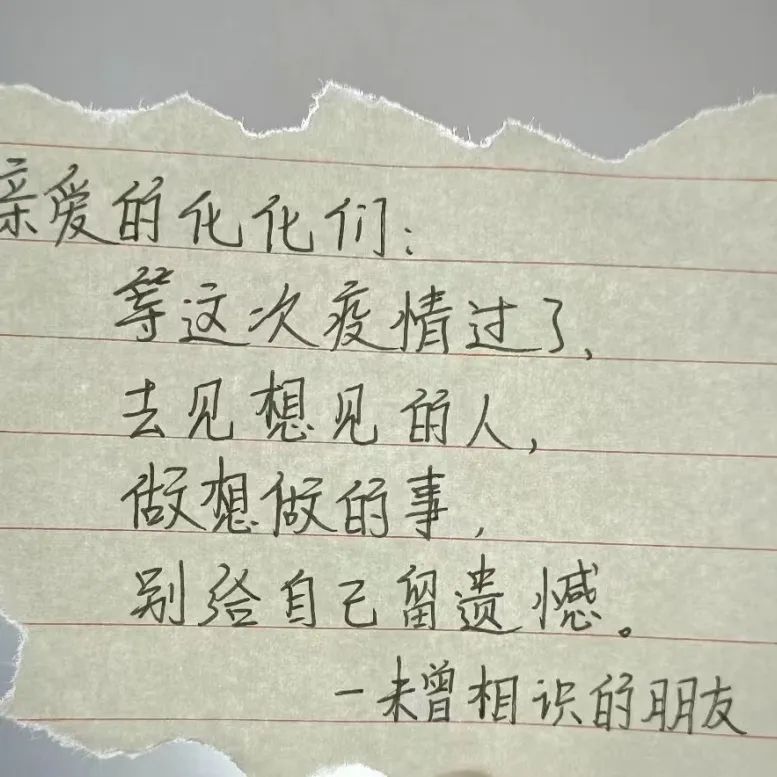 亲爱的化化们：
等这次疫情过了，
去见想见的人，
做想做的事，
别给自己留遗憾。
一未曾相识的朋友